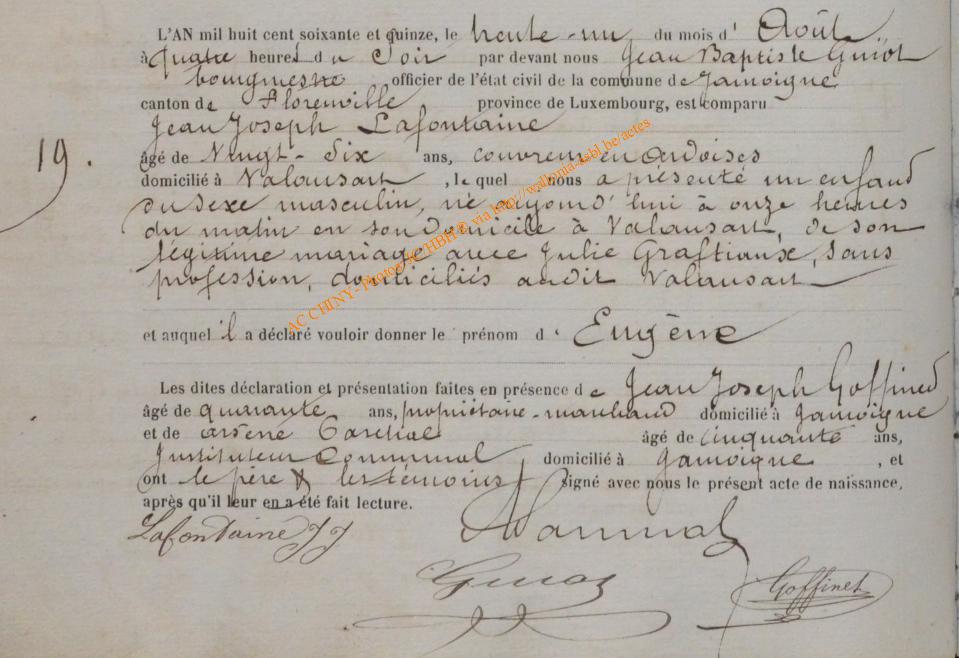 L'AN mil huit cent soixante et quinze, le trente-un du mois d' Août
à quatre heures du Soir par devant nous Jean Baptiste Guiot
bourgmestre officier de l'état civil de la commune de Jamoigne
canton de Florenville province de Luxembourg, est comparu
Jean Joseph Lafontaine
19. âgé de Vingt-Six ans, couvreur en ardoises
domicilié à Valansart, lequel nous a présenté un enfant
du sexe masculin, né aujourd'hui à onze heures
du matin en son domicile à Valansart, de son
légitime mariage avec Julie Graftiaux, sans
profession, domiciliés audit Valansart
et auquel il a déclaré vouloir donner le prénom d' Eugène
Les dites déclaration et présentation faites en présence de Jean Joseph Goffinet
âgé de quarante ans, propriétaire-marchand domicilié à Jamoigne
et de arsène âgé de cinquante ans,
Instituteur Communal domicilié à Jamoigne, et
ont le père & les témoins signé avec nous le présent acte de naissance,
après qu'il leur en a été fait lecture.
Lafontaine JJ
Goffinet
AC CHINY - Photos JC/HBH © via http://wallonia-asbl.be/actes